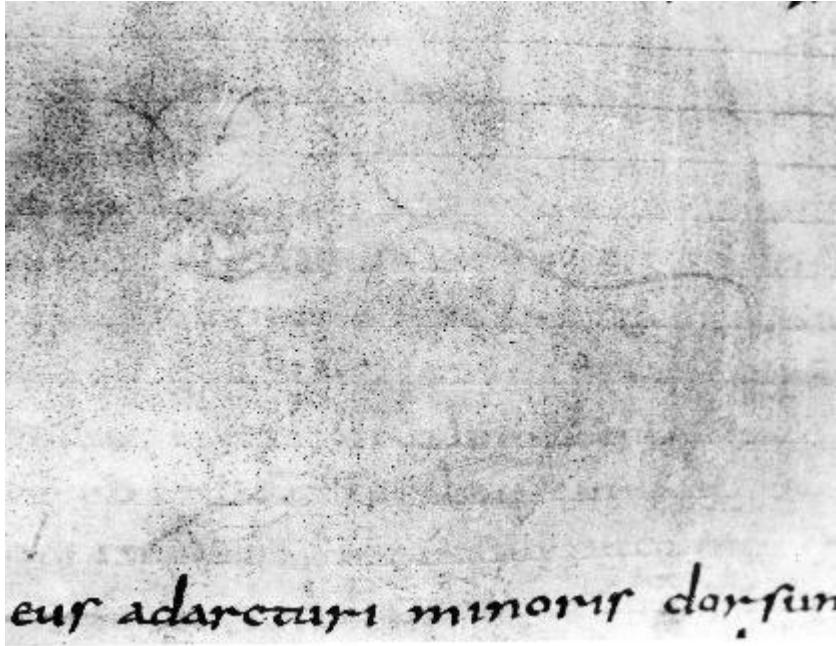 eus adarcturi minoris dorsum